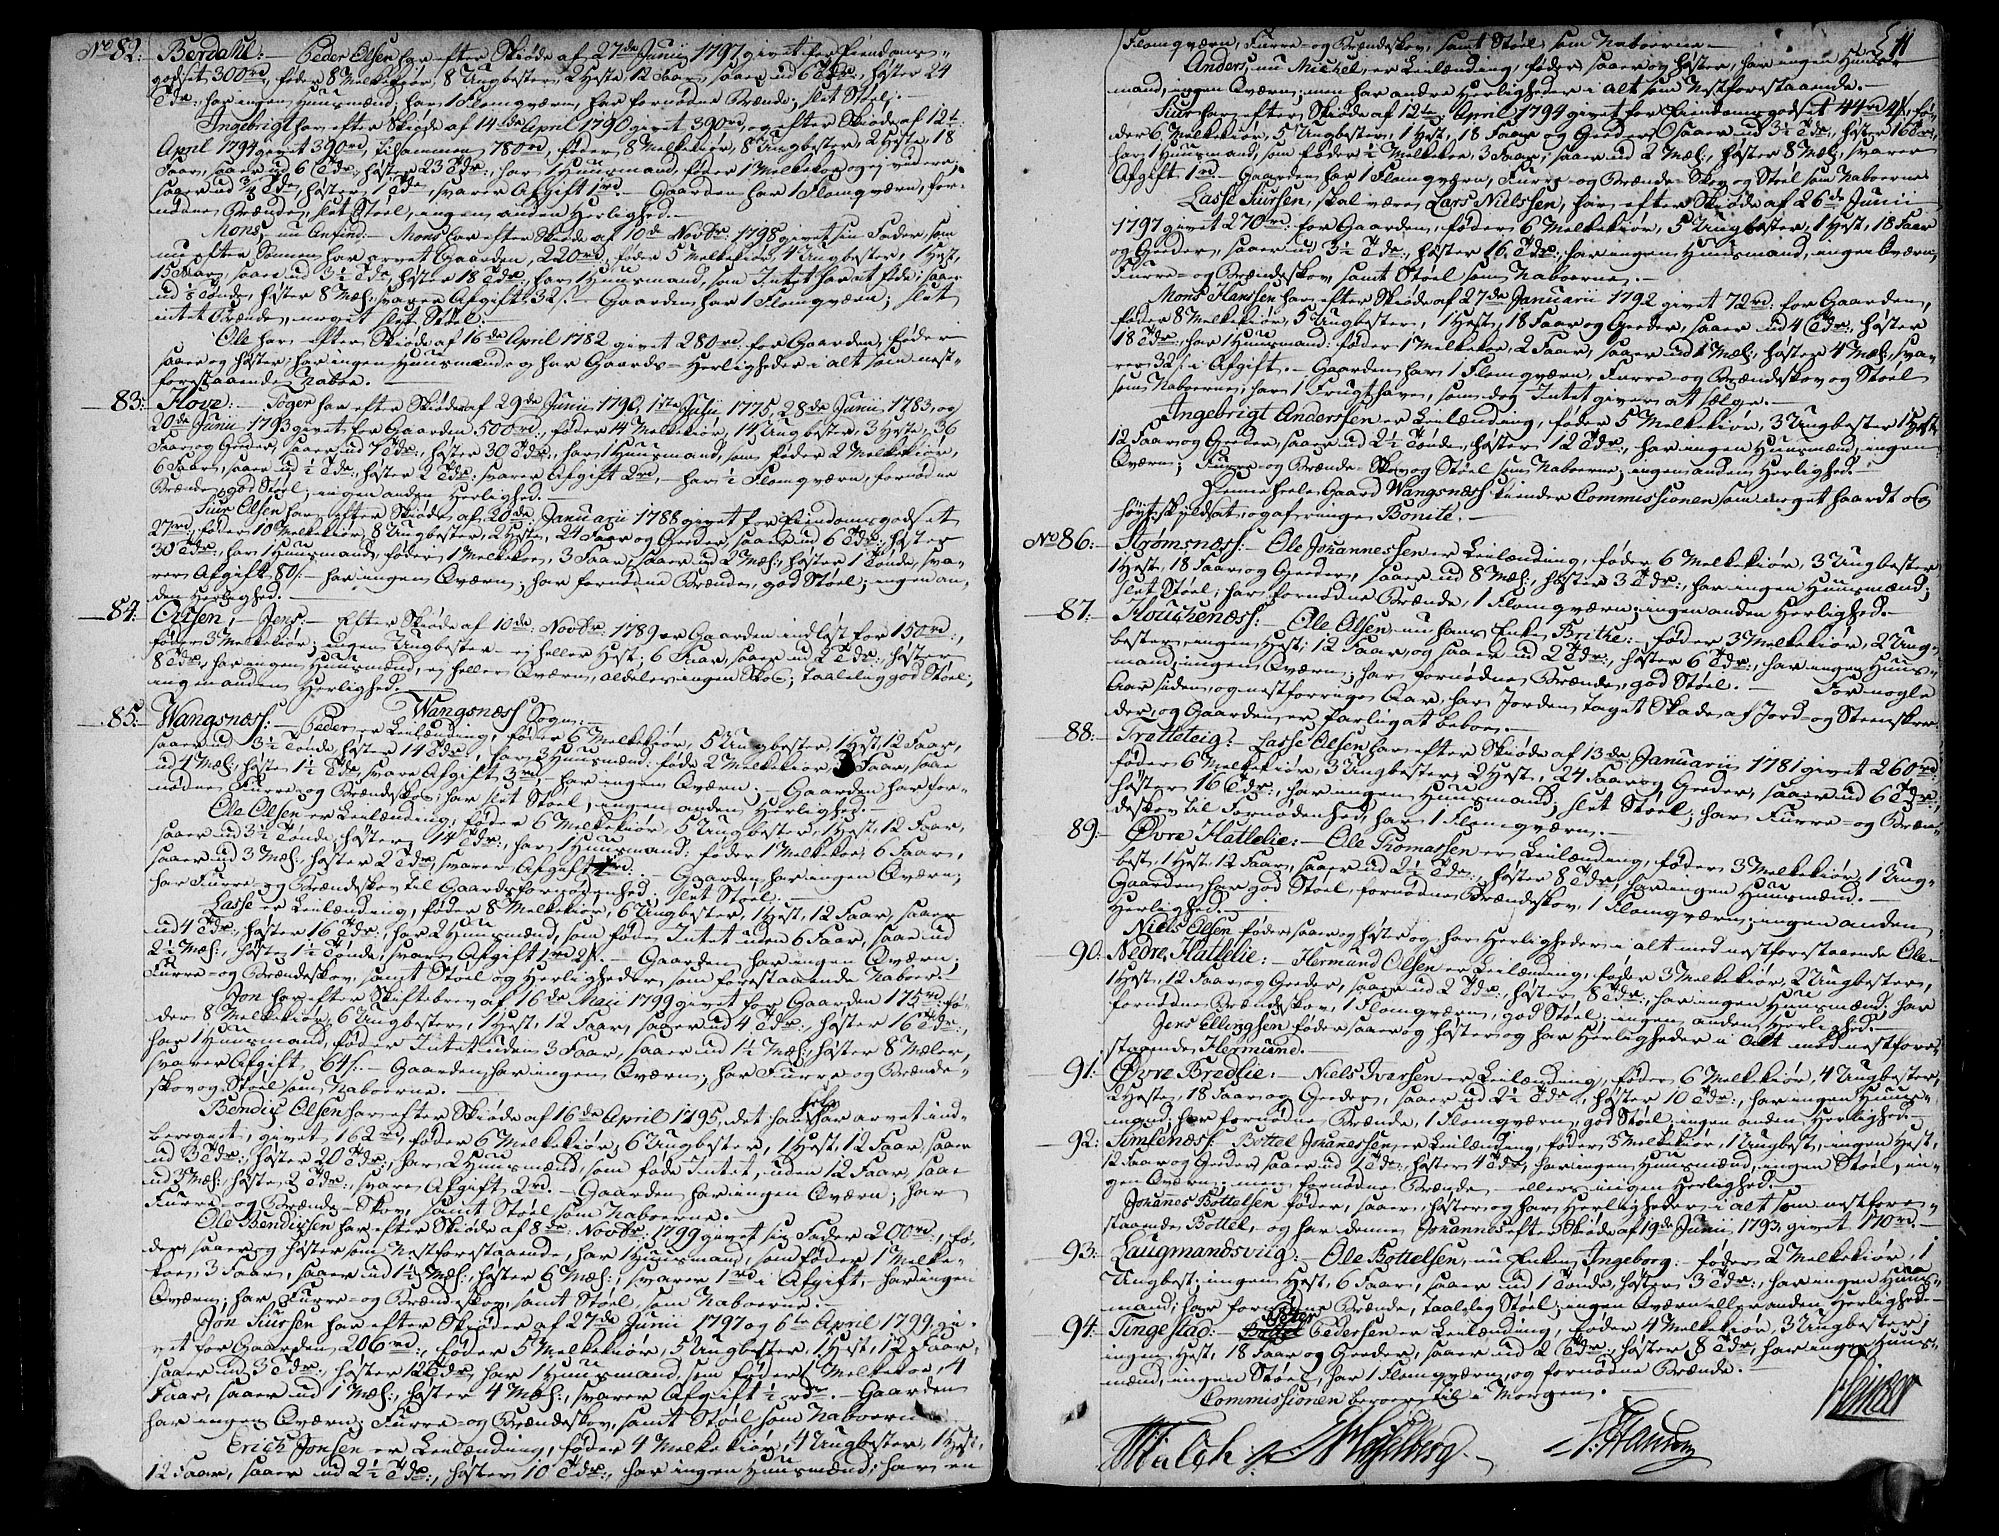 No 82. Berdahl: – Peder Olsen har efter Skiöde af 27de Junij 1797 givet for Eiendoms-
godset 300rd, föder 8 Melkekiör, 8 Ungbester, 2 Heste 12 Faar, saaer ud 6 Tdr, höster 24
Tdr:, har ingen Huusmænd; har 1 Flomqværn, har fornödne Brænde, slet Stöel. –
Ingebrigt har efter Skiöde af 14de April 1790 givet 390rd, og efter Skiöde af 12te
April 1794 givet 390rd, tilsammen 780rd, föder 8 Melkekiör, 8 Ungbester, 2 Heste, 18
Faar, saaer ud 6 Tdr:, höster 23 Tdr:, har 1 Huusmand, föder 1 Melkekoe og ej videre;
saaer ud Tde, höster 1 Tde, svarer Afgift 1rd. – Gaarden har 1 Flomqværn, for-
nödne Brænde, slet Stöel, ingen anden Herlighed. –
Mons, nu Anfind: – Mons har efter Skiöde af 10de Novbr: 1798 givet sin Fader, som
nu efter Sönnen har arvet Gaarden, 220rd, föder 5 Melkekiör, 4 Ungbester, 1 Hest,
15 Faar, saaer ud 3½ Tde, höster 18 Tdr:, har 1 Huusmand, som Intet har at föde; saaer
ud Tönde, höster 8 Mæl:, svarer Afgift 32 s. – Gaarden har 1 Flomqværn; slet
intet Brænde, meget slet Stöel. –
Ole har efter Skiöde af 16de April 1782 givet 280rd for Gaarden, föder
saaer og höster; har ingen Huusmænd og har Gaards-Herligheder i alt som nest-
forstaaende Naboe. –
83: Hove: – Töger har efter Skiöde af 29de Junii 1790, 1ste Julii 1775, 28de Junii 1783, og
20de Junii 1793 givet for Gaarden 500rd:, föder 14 Melkekiör, 14 Ungbester, 3 Heste, 36
Faar og Geeder, saaer ud 7 Tdr, höster 30 Tdr:, har 1 Huusmand, som föder 2 Melkekiör,
6 Faar, saaer ud ½ Tde, höster 2 Tdr: svarer Afgift 2rd. – har 1 Flomqværn, fornödne
Brænde, god Stöel, ingen anden Herlighed. –
Siur Olsen har efter Skiöde af 20de Januarii 1788 givet for Eiendomsgodset
27rd, föder 10 Melkekiör, 8 Ungbester, 2 Heste, 24 Faar og Geeder, saaer ud 6 Tdr:, höster
30 Tdr:, har 1 Huusmand, föder 1 Melkekoe, 3 Faar; saaer ud 2 Mæl:, höster 1 Tönde, sva-
rer Afgift 80 s: – har ingen Qværn; har fornödne Brænde, god Stöel; ingen an-
den Herlighed. –
84: Orrsen; – Jens; – Efter Skiöde af 10de Novbr 1789 er Gaarden indlöst for 150rd:,
föder 3 Melkekiör, ingen Ungbester – ej heller Hest; 6 Faar, saaer ud 2 Tdr:, höster
8 Tdr:, har ingen Huusmænd, ej heller Qværn, aldeles ingen Skov; taalelig god Stöel,
ingen anden Herlighed. –
Wangsnæss Sogn: –
85: Wangsnæss: – Peder er Leilænding, föder 6 Melkekiör, 5 Ungbester, 1 Hest, 12 Faar,
saaer ud 3½ Tönde, höster 14 Tdr:, har 2 Huusmænd: föde 2 Melkekiör, 3 Faar, saae
ud 4 Mæl:, höste 1½ Tde, svare Afgift 3rd – har ingen Qværn; – Gaarden har for-
nödne Furre- og Brændeskov, har slet Stöel, ingen anden Herlighed. –
Ole Olsen er Leilænding, föder 6 Melkekiör, 5 Ungbester, 1 Hest, 12 Faar,
saaer ud 3½ Tönde, höster 14 Tdr:, har 1 Huusmand: föder 1 Melkekoe, 6 Faar,
saaer ud 3 Mæl:, höster 2 Tdr, svarer Afgift 1rd: – Gaarden har ingen Qværn;
har Furre- og Brændeskov til Gaards fornödenhed; slet Stöel: –
Lasse er Leilænding, föder 8 Melkekiör, 6 Ungbester, 1 Hest, 12 Faar, saaer
ud 4 Tdr:, höster 16 Tdr:, har 2 Huusmænd, som föde Intet uden 6 Faar, saae ud
2½ Mæl:, höste 1½ Tönde, svare Afgift 1rd 2 s. – Gaarden har ingen Qværn;
Furre- og Brændeskov, samt Stöel og Herligheder, som forestaaende Naboer. –
Jon har efter Skiftebrev af 16de Maii 1799 givet for Gaarden 175rd, fö-
der 8 Melkekiör, 6 Ungbester, 1 Hest, 12 Faar, saaer ud 4 Tdr:, höster 16 Tdr:,
har 1 Huusmand, föder Intet uden 3 Faar, saaer ud 1½ Mæl:, höster 8 Mæler,
svarer Afgift 64 s: – Gaarden har ingen Qværn; har Furre- og Brænde-
skov og Stöel som Naboerne. –
Bendix Olsen har efter Skiöde af 16de April 1795, det han selv har arvet ind-
beregnet, givet 162rd, föder 6 Melkekiör, 6 Ungbester, 1 Hest, 12 Faar, saaer
ud 3 Tdr:, höster 20 Tdr:, har 2 Huusmænd, som föde Intet, uden 12 Faar, saae
ud 3 Mæl:, höste 2 Tdr:, svare Afgift 2rd. – Gaarden har ingen Qværn; har
Furre- og Brænde-Skov, samt Stöel som Naboerne. –
Ole Bendixsen har efter Skiöde af 8de Novbr 1799 givet sin Fader 200rd, fö-
der, saaer og höster som Nestforestaaende, har 1 Huusmand, som föder 1 Melke-
koe, 3 Faar, saaer ud 1½ Mæl:, höster 6 Mæl:, svarer 1rd i Afgift. – har ingen
Qværn; har Furre- og Brændeskov, samt Stöel som Naboerne. –
Jon Siursen har efter Skiöder af 27de Junii 1797 og 6te April 1799 gi-
vet for Gaarden 206rd:, föder 5 Melkekiör, 5 Ungbester, 1 Hest, 12 Faar,
saaer ud 3 Tdr:, höster 12 Tdr:, har 1 Huusmand, som föder 1 Melkekoe, 4
Faar, saaer ud 1 Mæl:, höster 4 Mæl:, svarer Afgift ½ rdr. – Gaarden
har ingen Qværn; Furre- og Brændeskov, samt Stöel som Naboerne –
Erich Jonsen er Leilænding, föder 4 Melkekiör, 4 Ungbester, 1 Hest,
12 Faar, saaer ud 2½ Tdr:, höster 10 Tdr:, har ingen Huusmænd; har en
11
Flomqværn, Furre- og Brændeskov, samt Stöel som Naboerne –
Anders, nu Michel, er Leilænding, föder saaer og höster, har ingen Huus-
mand, ingen Qværn; men har andre Herligheder i alt som Nestforstaaende. –
Siur har efter Skiöde af 12te April 1794 givet for Eiendomsgodset 44rd 4 s, fö-
der 6 Melkekiör, 5 Ungbester, 1 Hest, 18 Faar og Geeder, saaer ud 3½ Tdr:, höster 16 Tdr:,
har 1 Huusmand, som föder ½ Melkekoe, 3 Faar, saaer ud 2 Mæl:, höster 8 Mæl:, svarer
Afgift 1rd – Gaarden har 1 Flomqværn, Furre- og Brænde-Skov og Stöel som Naboerne
Lasse Siursen, skal være Lars Nielssen, har efter Skiöde af 26de Junii
1797 givet 270rd: for Gaarden, föder 6 Melkekiör, 5 Ungbester, 1 Hest, 18 Faar
og Geeder, saaer ud 3½ Tdr:, höster 16 Tdr:, har ingen Huusmand, ingen Qværn,
Furre- og Brændeskov samt Stöel som Naboerne. –
Mons Hanssen har efter Skiöde af 27de Januarii 1792 givet 72rd: for Gaarden,
föder 8 Melkekiör, 5 Ungbester, 1 Hest, 18 Faar og Geeder, saaer ud 4 Tdr:, höster
18 Tdr:, har 1 Huusmand: föder 1 Melkekoe, 2 Faar, saaer ud 1 Mæl:, höster 4 Mæl:, sva-
rer 32 s i Afgift. – Gaarden har 1 Flomqværn, Furre- og Brændeskov og Stöel
som Naboerne; har 1 Frugthave, som dog Intet giver at sælge. –
Ingebrigt Anderssen er Leilænding, föder 5 Melkekiör, 3 Ungbester 1 Hest,
12 Faar og Geeder, saaer ud 2½ Tönde, höster 12 Tdr:, har ingen Huusmænd, ingen
Qværn; Furre- og Brænde-Skov og Stöel som Naboerne; ingen anden Herlighed. –
Denne heele Gaard Wangsnæss kiender Commissionen som meget haardt og
höyt skyldsat, og af ringe Bonité. –
No 86: Strömsnæss: – Ole Johannessen er Leilænding, föder 6 Melkekiör, 3 Ungbester
1 Hest, 18 Faar og Geeder, saaer ud 8 Mæl:, höster 3 Tdr:, har ingen Huusmænd;
slet Stöel, har fornödne Brænde, 1 Flomqværn; ingen anden Herlighed. –
87: Houchenæss: – Ole Olsen, nu hans Enke Brithe: – föder 3 Melkekiör, 2 Ung-
bester, ingen Hest; 12 Faar, og saaer ud 2 Tdr:, höster 6 Tdr:, har ingen Huus-
mand, ingen Qværn; har fornödne Brænde, god Stöel. – For nogle
Aar siden, og nest forrige Aar, har Jorden taget Skade af Jord- og Steenskre-
der, og Gaarden er farlig at beboe. –
88: Tretteteig: – Lasse Olsen har efter Skiöde af 13de Januarii 1781 givet 260rd:
föder 6 Melkekiör, 3 Ungbester, 2 Heste, 24 Faar og Geeder, saaer ud 6 Tdr:,
höster 16 Tdr:, har ingen Huusmand; slet Stöel; har Furre- og Bræn-
deskov til Fornödenhed, har 1 Flomqværn. –
89: Övre Hatlelie: – Ole Thomassen er Leilænding, föder 3 Melkekiör, 1 Ung-
best, 1 Hest 12 Faar, saaer ud 2½ Tdr:, höster 8 Tdr:, har ingen Huusmænd. –
Gaarden har god Stöel, fornödne Brændeskov, 1 Flomqværn; ingen anden
Herlighed. –
Niels Olsen föder saaer og höster og har Herligheder i alt med nestforstaaende Ole –
90. Nedre Hatlelie: – Hermund Olsen er Leilænding, föder 3 Melkekiör, 2 Ungbester,
1 Hest, 12 Faar og Geeder, saaer ud 2 Tdr:, höster 8 Tdr:, har ingen Huusmænd; har
fornödne Brændeskov, 1 Flomqværn, god Stöel; ingen anden Herlighed. –
Jens Ellingsen föder saaer og höster og har Herligheder i Alt med nestfore-
staaende Hermund. –
91: Övre Bredlie: – Niels Iversen er Leilænding, föder 6 Melkekiör, 4 Ungbester,
2 Heste, 18 Faar og Geeder, saaer ud 2½ Tdr:, höster 10 Tdr:, har ingen Huus-
mænd, har fornödne Brænde, 1 Flomqværn, god Stöel, ingen anden Herlighed. –
92: Simlenæss: – Bottel Johanessen er Leilænding, föder 3 Melkekiör, 1 Ungbest, ingen Hest,
12 Faar og Geeder, saaer ud 1 Tdr:, höster 4 Tdr, har ingen Huusmænd, ingen Stöel, in-
gen Qværn; men fornödne Brænde – ellers ingen Herlighed. –
Johanes Bottelsen föder, saaer, höster og har Herligheder i alt som nestfore-
staaende Bottel, og har denne Johannes efter Skiöde af 19de Junii 1793 givet 170rd. –
93: Laugmandsviig: – Ole Bottelsen, nu Enken Ingeborg: – föder 2 Melkekiör, 1
Ungbest: ingen Hest, 6 Faar, saaer ud 1 Tönde, höster 3 Tdr:, har ingen Huus-
mand; har fornödne Brænde, taalelig Stöel; ingen Qværn eller anden Herlighed –
94: Tingestad: – Peder Pedersen er Leilænding, föder 4 Melkekiör, 3 Ungbester,
ingen Hest, 18 Faar og Geeder, saaer ud 2 Tdr:, höster 8 Tdr:, har ingen Huus-
mænd, ingen Stöel, har 1 Flomqværn, og fornödne Brænde. –
Commissionen beroer til i Morgen. –